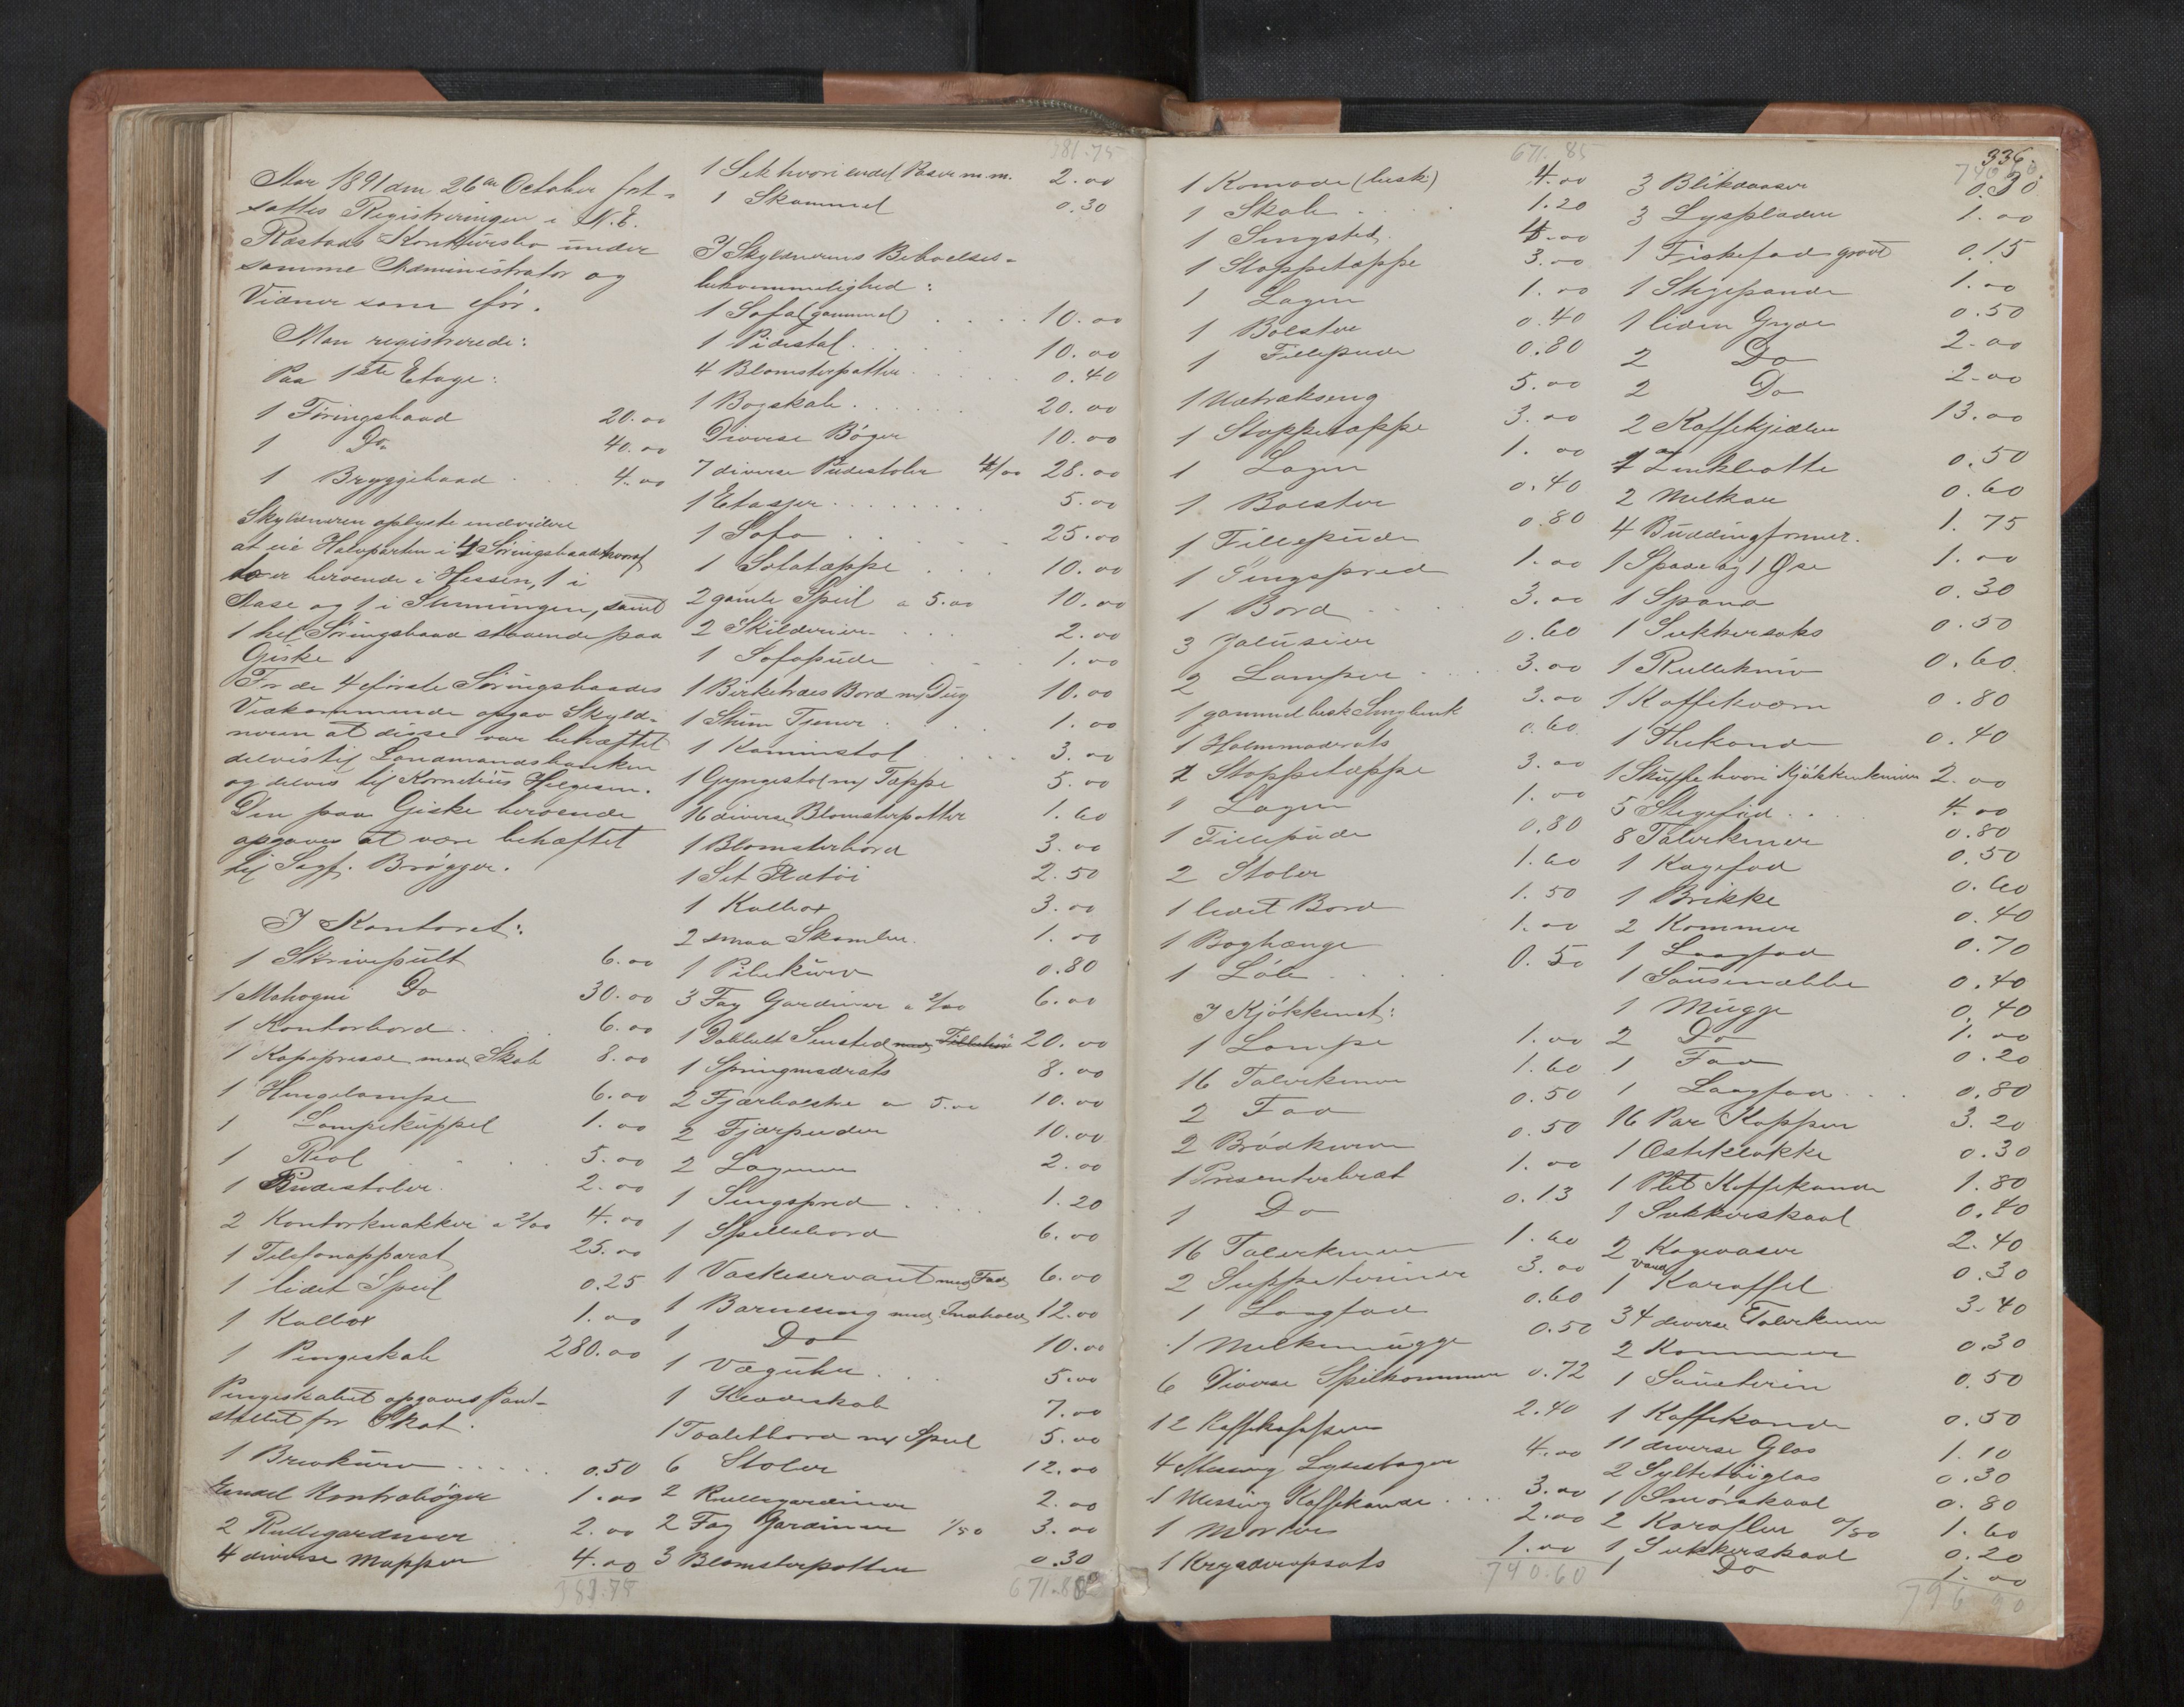 Aar 1891 den 26de October fort-
sattes Registreringen i N. E.
Rostads Konkursbo under
samme Administrator og
Vidner som før.
Man registrerede:
Paa 1ste Etage:
1 Føringsbaad 20.00
1 Do 40.00
1 Bryggebaad 4.00
Skyldneren oplyste endvidere
at eie Halvparten i 4 Føringsbaade hvoraf
to er beroende i Hessen, 1 i
Aase og 1 i Stemningen, samt
1 hel Føringsbaad staaende paa
Giske
For de 4 første Føringsbaades
Vedkommende opgav Skyld-
neren at disse var behæftet
delvis til Landmandsbanken
og delvis til Kornelius Helgesen.
Den paa Giske beroende
opgaves at være behæftet
til Sagf. Brøgger.
I Kontoret:
1 Skrivepult 6.00
1 Mahogni Do 30.00
1 Kontorbord 6.00
1 Kopipresse med Skab 8.00
1 Hengelampe 6.00
1 Lampekuppel 1.00
1 Reol 5.00
1 Pudestoler 2.00
2 Kontorknakker a 2/00 4.00
1 Telefonapparat 25.00
1 lidet Speil 0.25
1 Kulbox 1.00
1 Pengeskab 280.00
Pengeskabet opgaves pant-
stillet for Skat.
1 Brevkurv 0.50
Endel Kontrabøger 1.00
2 Rullegardiner 2.00
4 diverse Mapper 4.00
381.75
381.75
1 Sæk hvori endel Poser m.m. 2.00
1 Skammel 0.30
I Skyldnerens Beboelses-
bekvemmelighed:
1 Sofa (gammel) 10.00
1 Pidestal 10.00
4 Blomsterpotter 0.40
1 Bogskab 20.00
Diverse Bøger 10.00
7 diverse Pudestoler 4/00 28.00
1 Etasjer 5.00
1 Sofa 25.00
1 Sofatæppe 10.00
2 gamle Speil a 5.00 10.00
2 Skilderier 2.00
1 Sofapude 1.00
1 Birketræes Bord m/ Dug 10.00
1 Stum Tjener 1.00
1 Kaminstol 3.00
1 Gyngestol m/ Tæppe 5.00
16 diverse Blomsterpotter 1.60
1 Blomsterbord 3.00
1 Set Ildtøi 2.50
1 Kulbox 3.00
2 smaa Skamler 1.00
1 Pilekurv 0.80
3 Fag Gardiner a 2/00 6.00
1 Dobbelt Sensted med Tilbehør 20.00
1 Springmadrats 8.00
2 Fjærbolstre a 5.00 10.00
2 Fjærpuder 10.00
2 Lagener 2.00
1 Sengspred 1.20
1 Spillebord 6.00
1 Vaskeservant med Fad 6.00
1 Barneseng med Indhold 12.00
1 Do 10.00
1 Væguhr 5.00
1 Klædeskab 7.00
1 Toaletbord m/ Speil 5.00
6 Stoler 12.00
2 Rullegardiner 2.00
2 Fag Gardiner 1/50 3.00
3 Blomsterpotter 0.30
671.85
671.85
1 Komode (besk:) 4.00
1 Skab 1.20
1 Sengsted 4.00
1 Stoppetæppe 3.00
1 Lagen 1.00
1 Bolster 0.40
1 Fillepude 0.80
1 Udtrækseng 5.00
1 Stoppetæppe 3.00
1 Lagen 1.00
1 Bolster 0.40
1 Fillepude 0.80
1 Sengspred 1.00
1 Bord 3.00
3 Jalusier 0.60
2 Lamper 3.00
1 gammel besk Sengbenk 3.00
1 Halmmadrats 0.60
1 Stoppetæppe 3.00
1 Lagen 1.00
1 Fillepude 0.80
2 Stoler 1.60
1 lidet Bord 1.50
1 Boghænge 1.00
1 Lók 0.50
I Kjøkkenet:
1 Lampe 1.00
16 Talerkener 1.60
2 Fad 0.50
2 Brødkurve 0.50
1 Presenterbræt 1.00
1 Do 0.13
16 Talerkener 1.60
2 Suppeteriner 3.00
1 Laagfad 0.60
1 Melkemugge 0.50
6 Diverse Spilkommer 0.72
12 Kaffekopper 2.40
4 Messing Lysestager 4.00
1 Messing Kaffekande 3.00
1 Morter 2.00
1 Krydderopsats 1.00
740.60
336.
740.60
3 Blikdaaser 0.30
3 Lysplader 1.00
1 Fiskefad grovt 0.15
1 Stegepande 1.00
1 liden Gryde 0.50
2 Do 2.00
2 Do 2.00
2 Kaffekjedler 13.00
1 Zinkbøtte 0.50
2 Melkar 0.60
4 Buddingformer. 1.75
1 Spade og 1 Øse 1.00
1 Spand 0.30
1 Sukkersaks 0.50
1 Rullekniv 0.60
1 Kaffekværn 0.80
1 Thekande 0.40
1 Skuffe hvori Kjøkkenkniver 2.00
5 Stegefad 4.00
8 Talerkener 0.80
1 Kagefad 0.50
1 Brikke 0.60
2 Kommer 0.40
1 Laagfad 0.70
1 Sausenebbe 0.40
1 Mugge 0.40
2 Do 1.00
1 Fad 0.20
1 Laagfad 0.80
16 Par Kopper 3.20
1 Osteklokke 0.30
1 Plet Kaffekande 1.80
1 Sukkerskaal 0.40
2 Kagevaser 2.40
1 Vand Karaffel 0.30
34 diverse Talerkener 3.40
2 Kommer 0.30
1 Sauceterin 0.50
1 Kaffekande 0.50
11 diverse Glas 1.10
2 Syltetøiglas 0.30
1 Smørskaal 0.80
2 Karafler 0/80 1.60
1 Sukkerskaal 0.20
1 Do 1.00